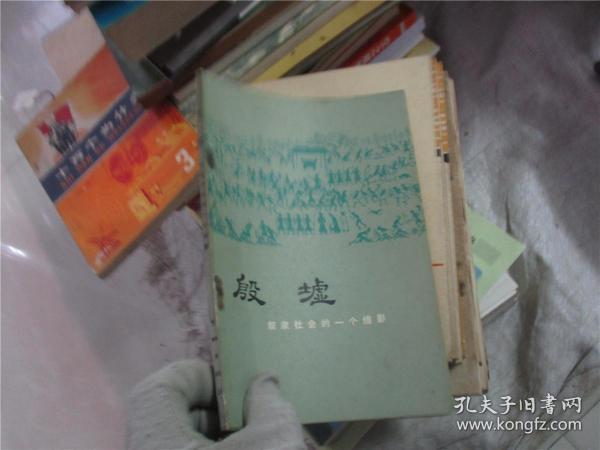 殷墟
奴隶社会的一个缩影
3
孔夫子旧书网
www.kongfz.com